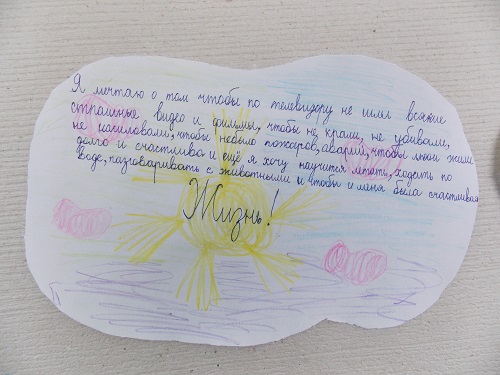 Я мечтаю о том чтобы по телевизору не шли всякие
страшные видео и фильмы, чтобы не крали, не убивали,
не насиловали, чтобы небыло пожаров, аварий, чтобы люди жили
долго и счастливо и ещё я хочу научится летать, ходить по
воде, разговаривать с животными и чтобы у меня была счастливая
Жизнь!